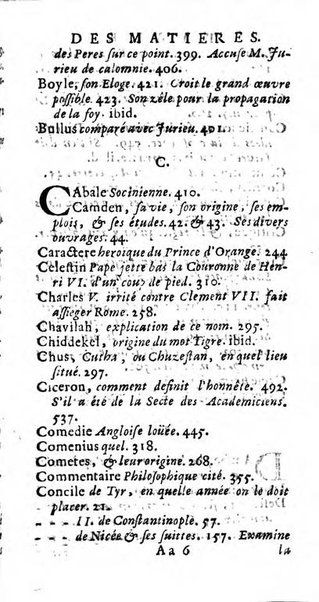 DES MATIERES.
des Peres sur ce point. 399. Accuse M. Ju-
rieu de calomnie. 406.
Boyle, son Eloge. 421. Croit le grand œuvre
possible. 423. Son zéle pour la propagation
de la foy. ibid.
Bullus comparé avec Jurieu. 401.
C.
CAbale Socinienne. 410.
Camden, sa vie, son origine, ses em-
plois, & ses études. 42. & 43. Ses divers
ouvrages. 44.
Caractere heroique du Prince d'Orange. 244
Celestin Pape jette bas la Couronne de Hen-
ri VI. d'un coup de pied. 310.
Charles V. irrité contre Clement VII. fait
assieger Rome. 258.
Chavilah, explication de ce nom. 295.
Chiddekel, origine du mot Tigre. ibid.
Chus, Cutha, ou Chuzestan, en quel lieu
situé. 297.
Ciceron, comment definit l'honnête. 492.
S'il a été de la Secte des Academiciens.
537.
Comedie Angloise loüée. 445.
Comenius quel. 318.
Cometes, & leur origine. 268.
Commentaire Philosophique cité. 355.
Concile de Tyr, en quelle année on le doit
placer. 21.
- - - II. de Constantinople. 57.
- - - de Nicée & ses suittes. 157. Examine
Aa 6 la